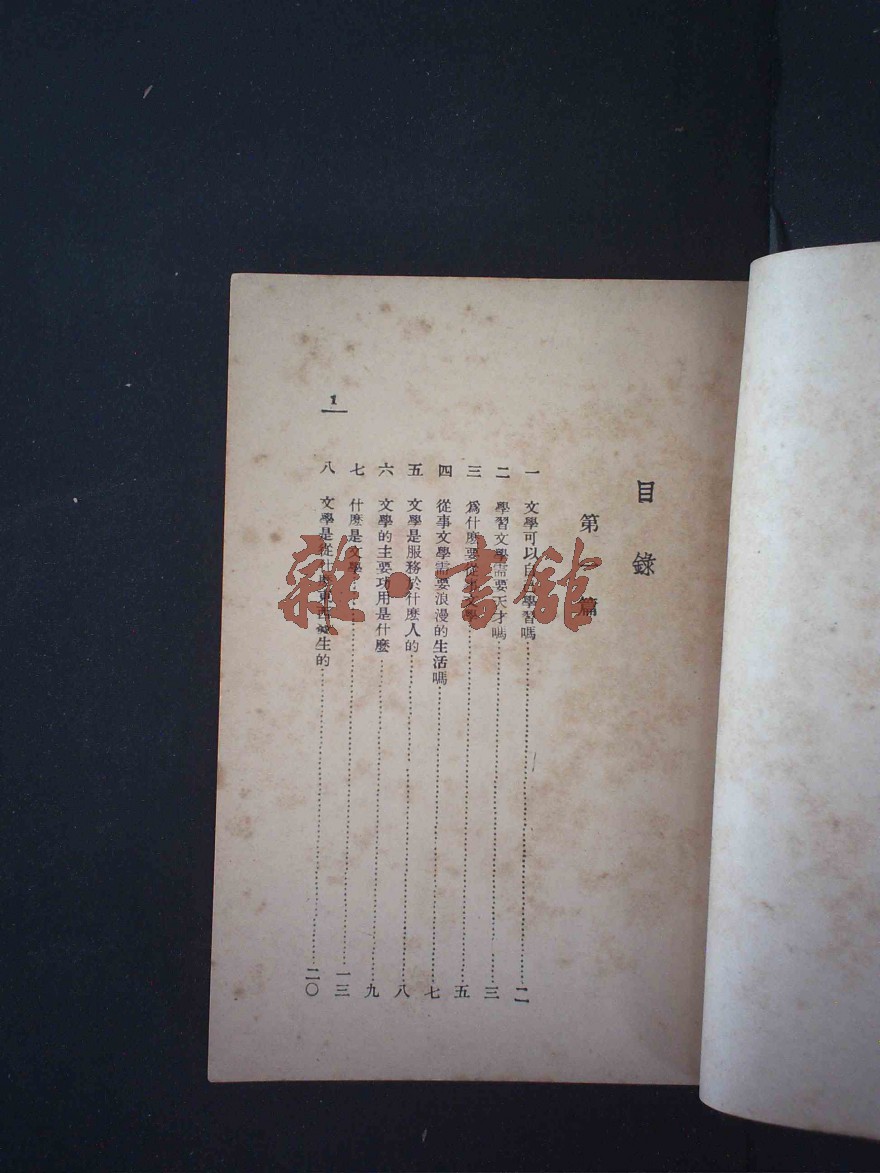 目錄
第一篇
一 文學可以自己學習嗎……二
二 學習文學需要天才嗎……三
三 爲什麼要從事文學……五
四 從事文學需要浪漫的生活嗎……七
五 文學是服務於什麼人的……八
六 文學的主要功用是什麼……九
七 什麼是文學……一三
八 文學是從什麼東西產生的……二〇
1
雜·書館